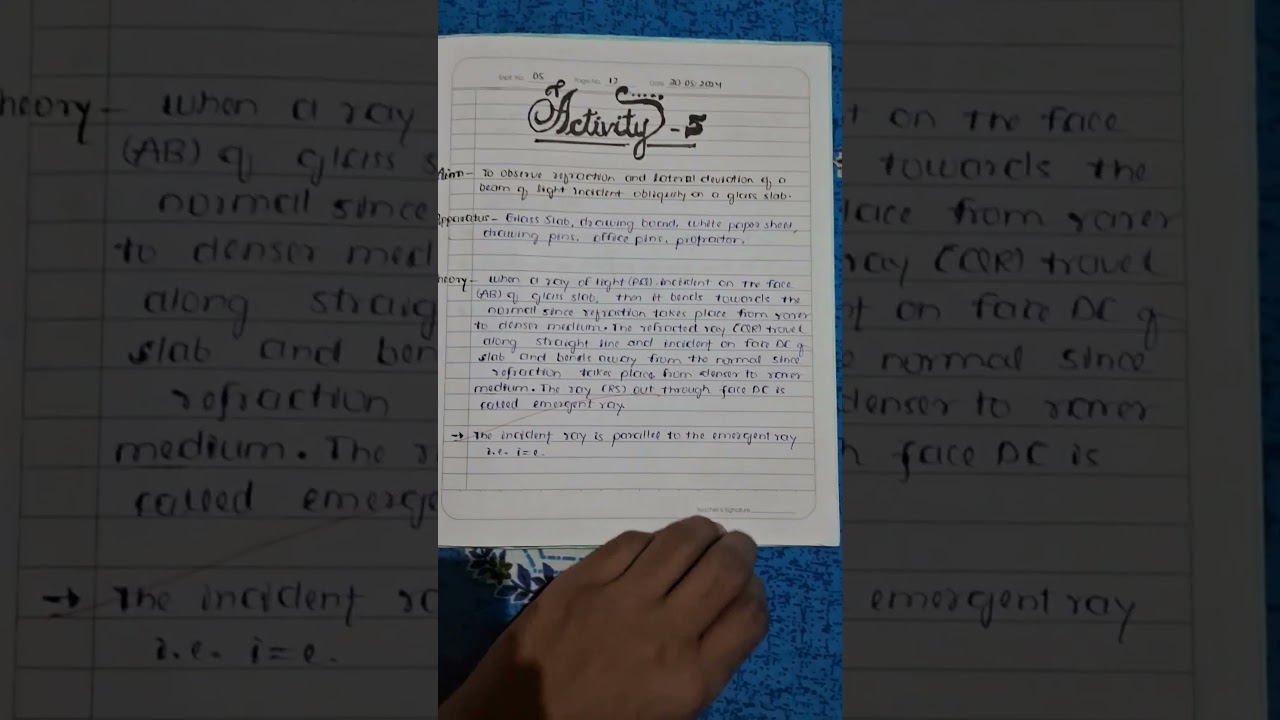 Expt. No. 05 Page No. 12 Date 20/05/2024
Activity - 5
Aim - To observe refraction and lateral deviation of a
beam of light incident obliquely on a glass slab.
Apparatus - Glass slab, drawing board, white paper sheet,
drawing pins, office pins, protractor.
heory - When a ray of light (PQ) incident on the face
(AB) of glass slab, then it bends towards the
normal since refraction takes place from rarer
to denser medium. The refracted ray (QR) travel
along straight line and incident on face DC of
slab and bends away from the normal since
refraction takes place from denser to rarer
medium. The ray (RS) out through face DC is
called emergent ray.
→ The incident ray is parallel to the emergent ray
i.e. i=e.
Teacher's Signature